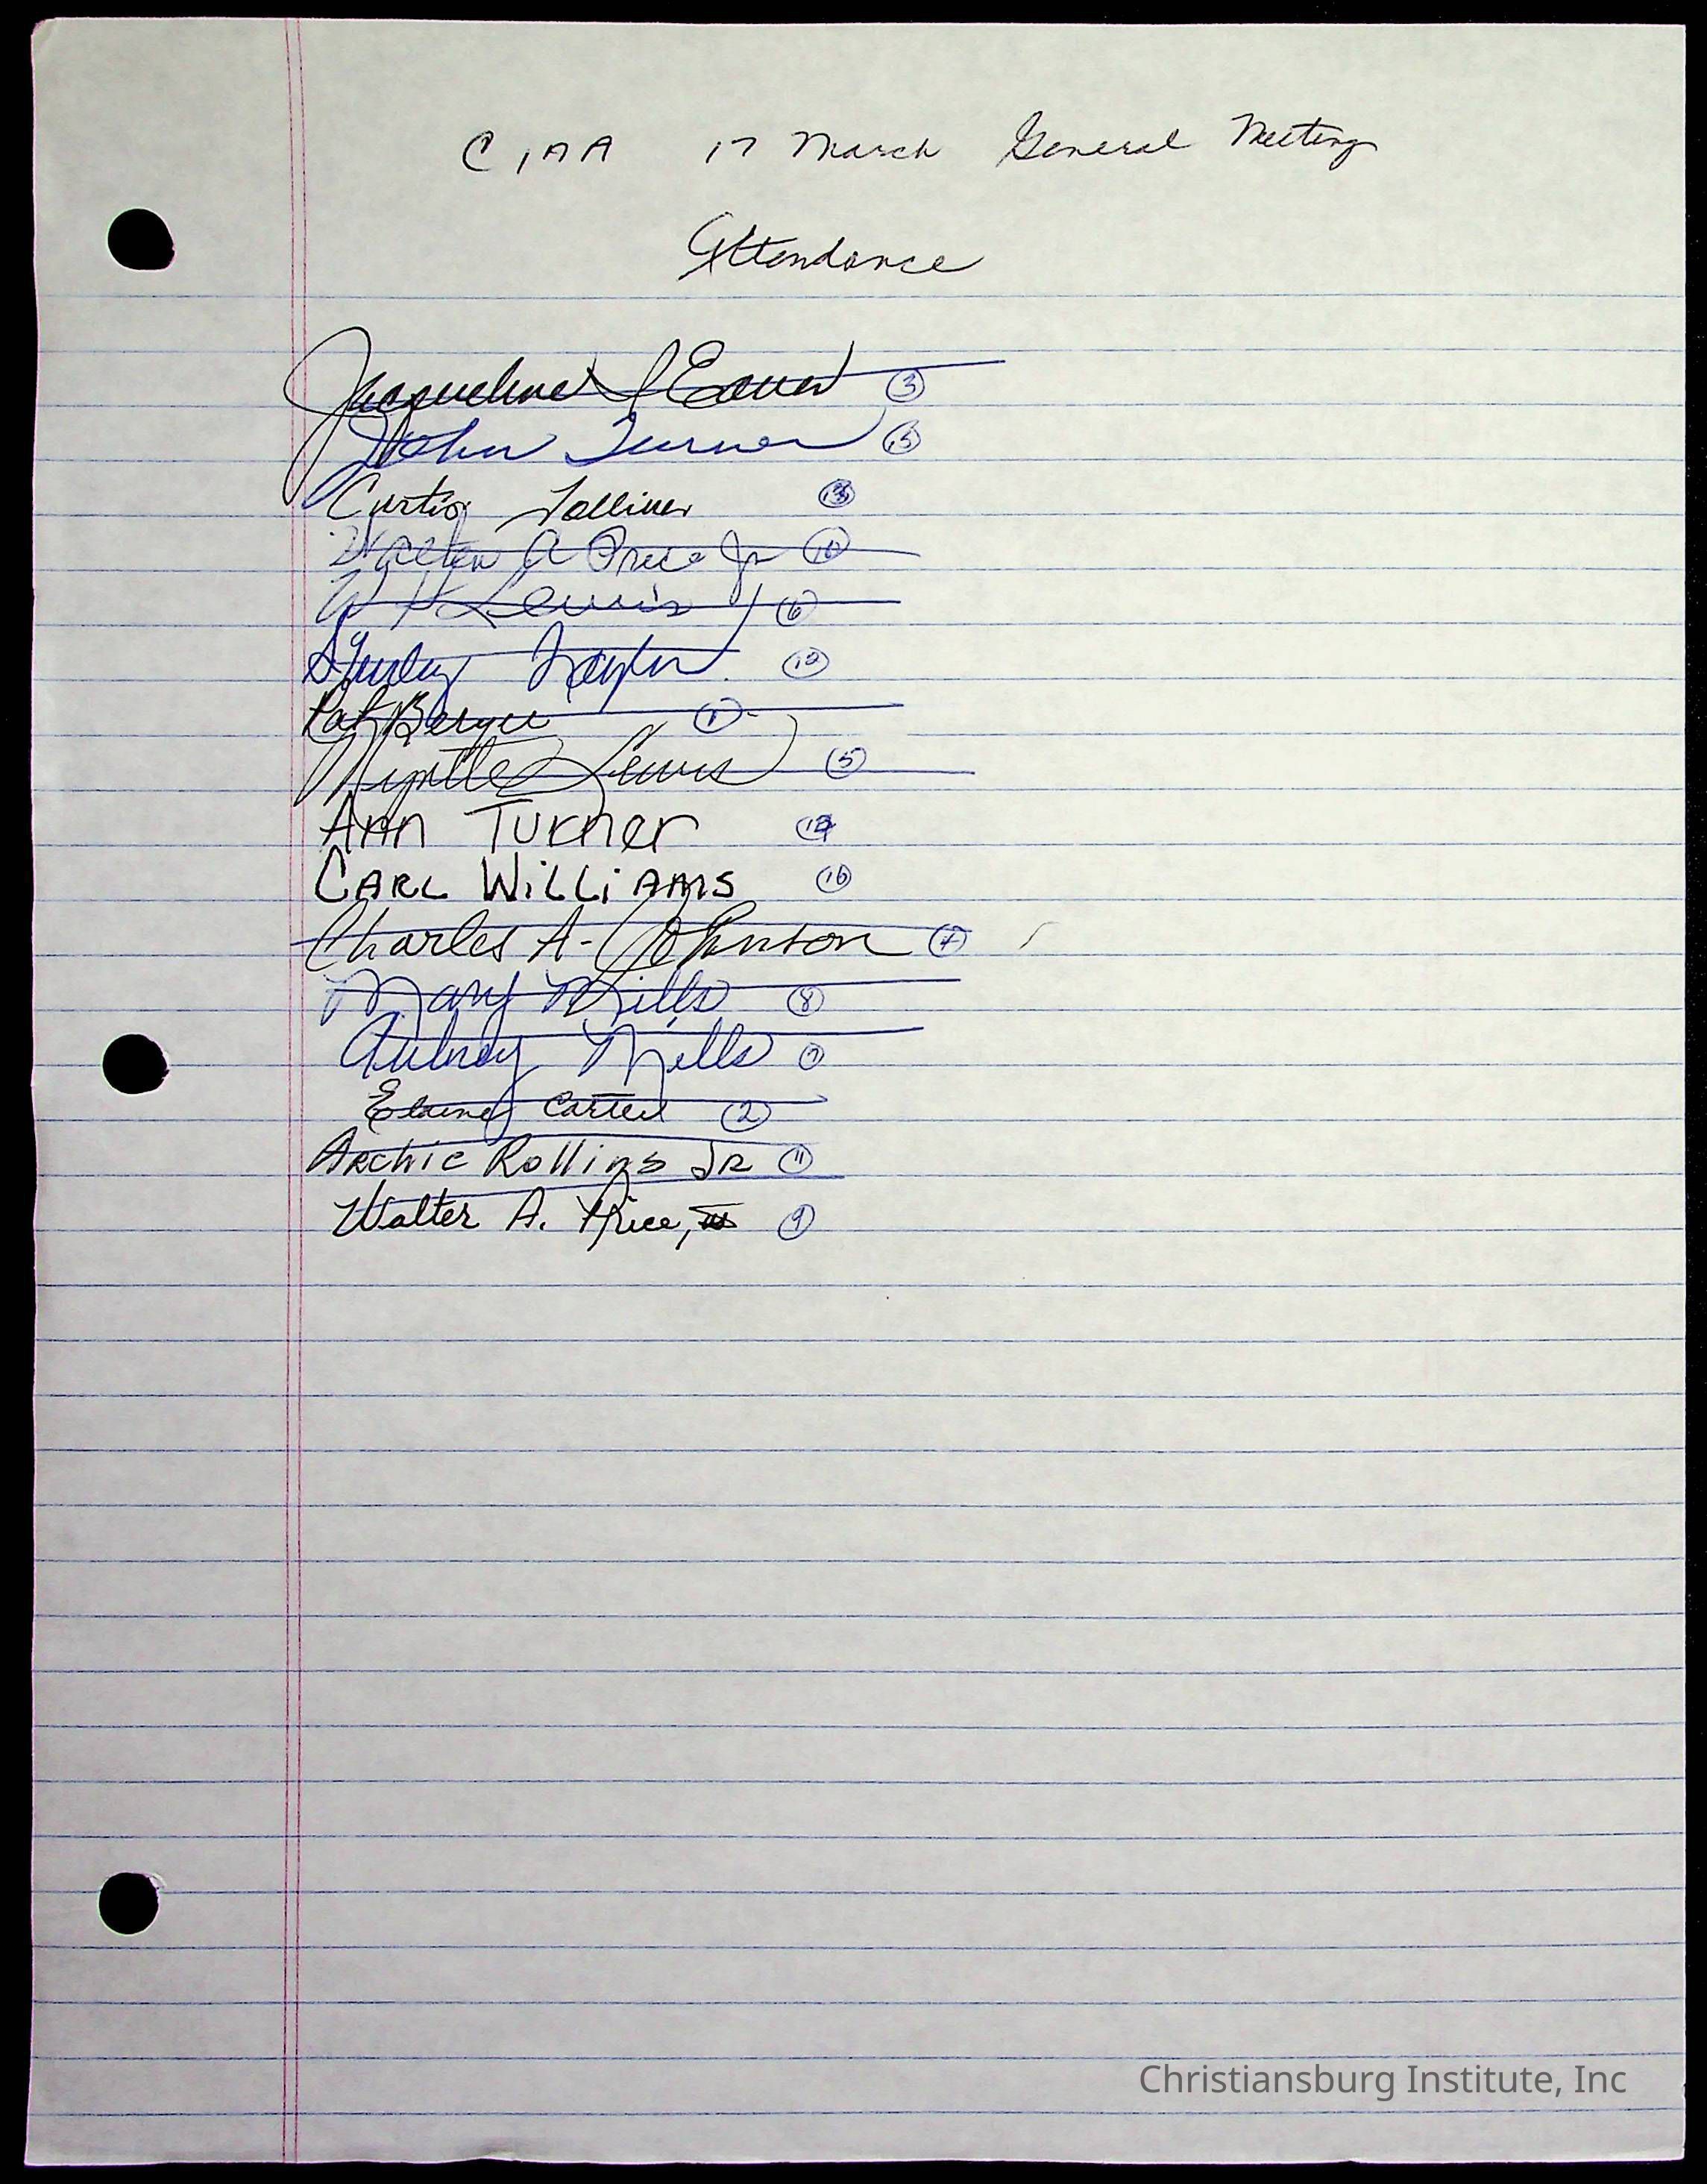 CIAA 17 March General Meeting
Attendance
Jacqueline Eaves 3
John Turner 15
Curtis 13
Walter A Price Jr 10
W H Lewis 6
Taylor 12
Pat 1
Myrtle Lewis 5
Ann Turner
CARL WiLLiAMS 16
Charles A. Johnson 4
Mary Mills 8
Aubrey Mills 7
Elaine Carter 2
Archie Rollins JR 11
Walter A. Price, III 9
Christiansburg Institute, Inc